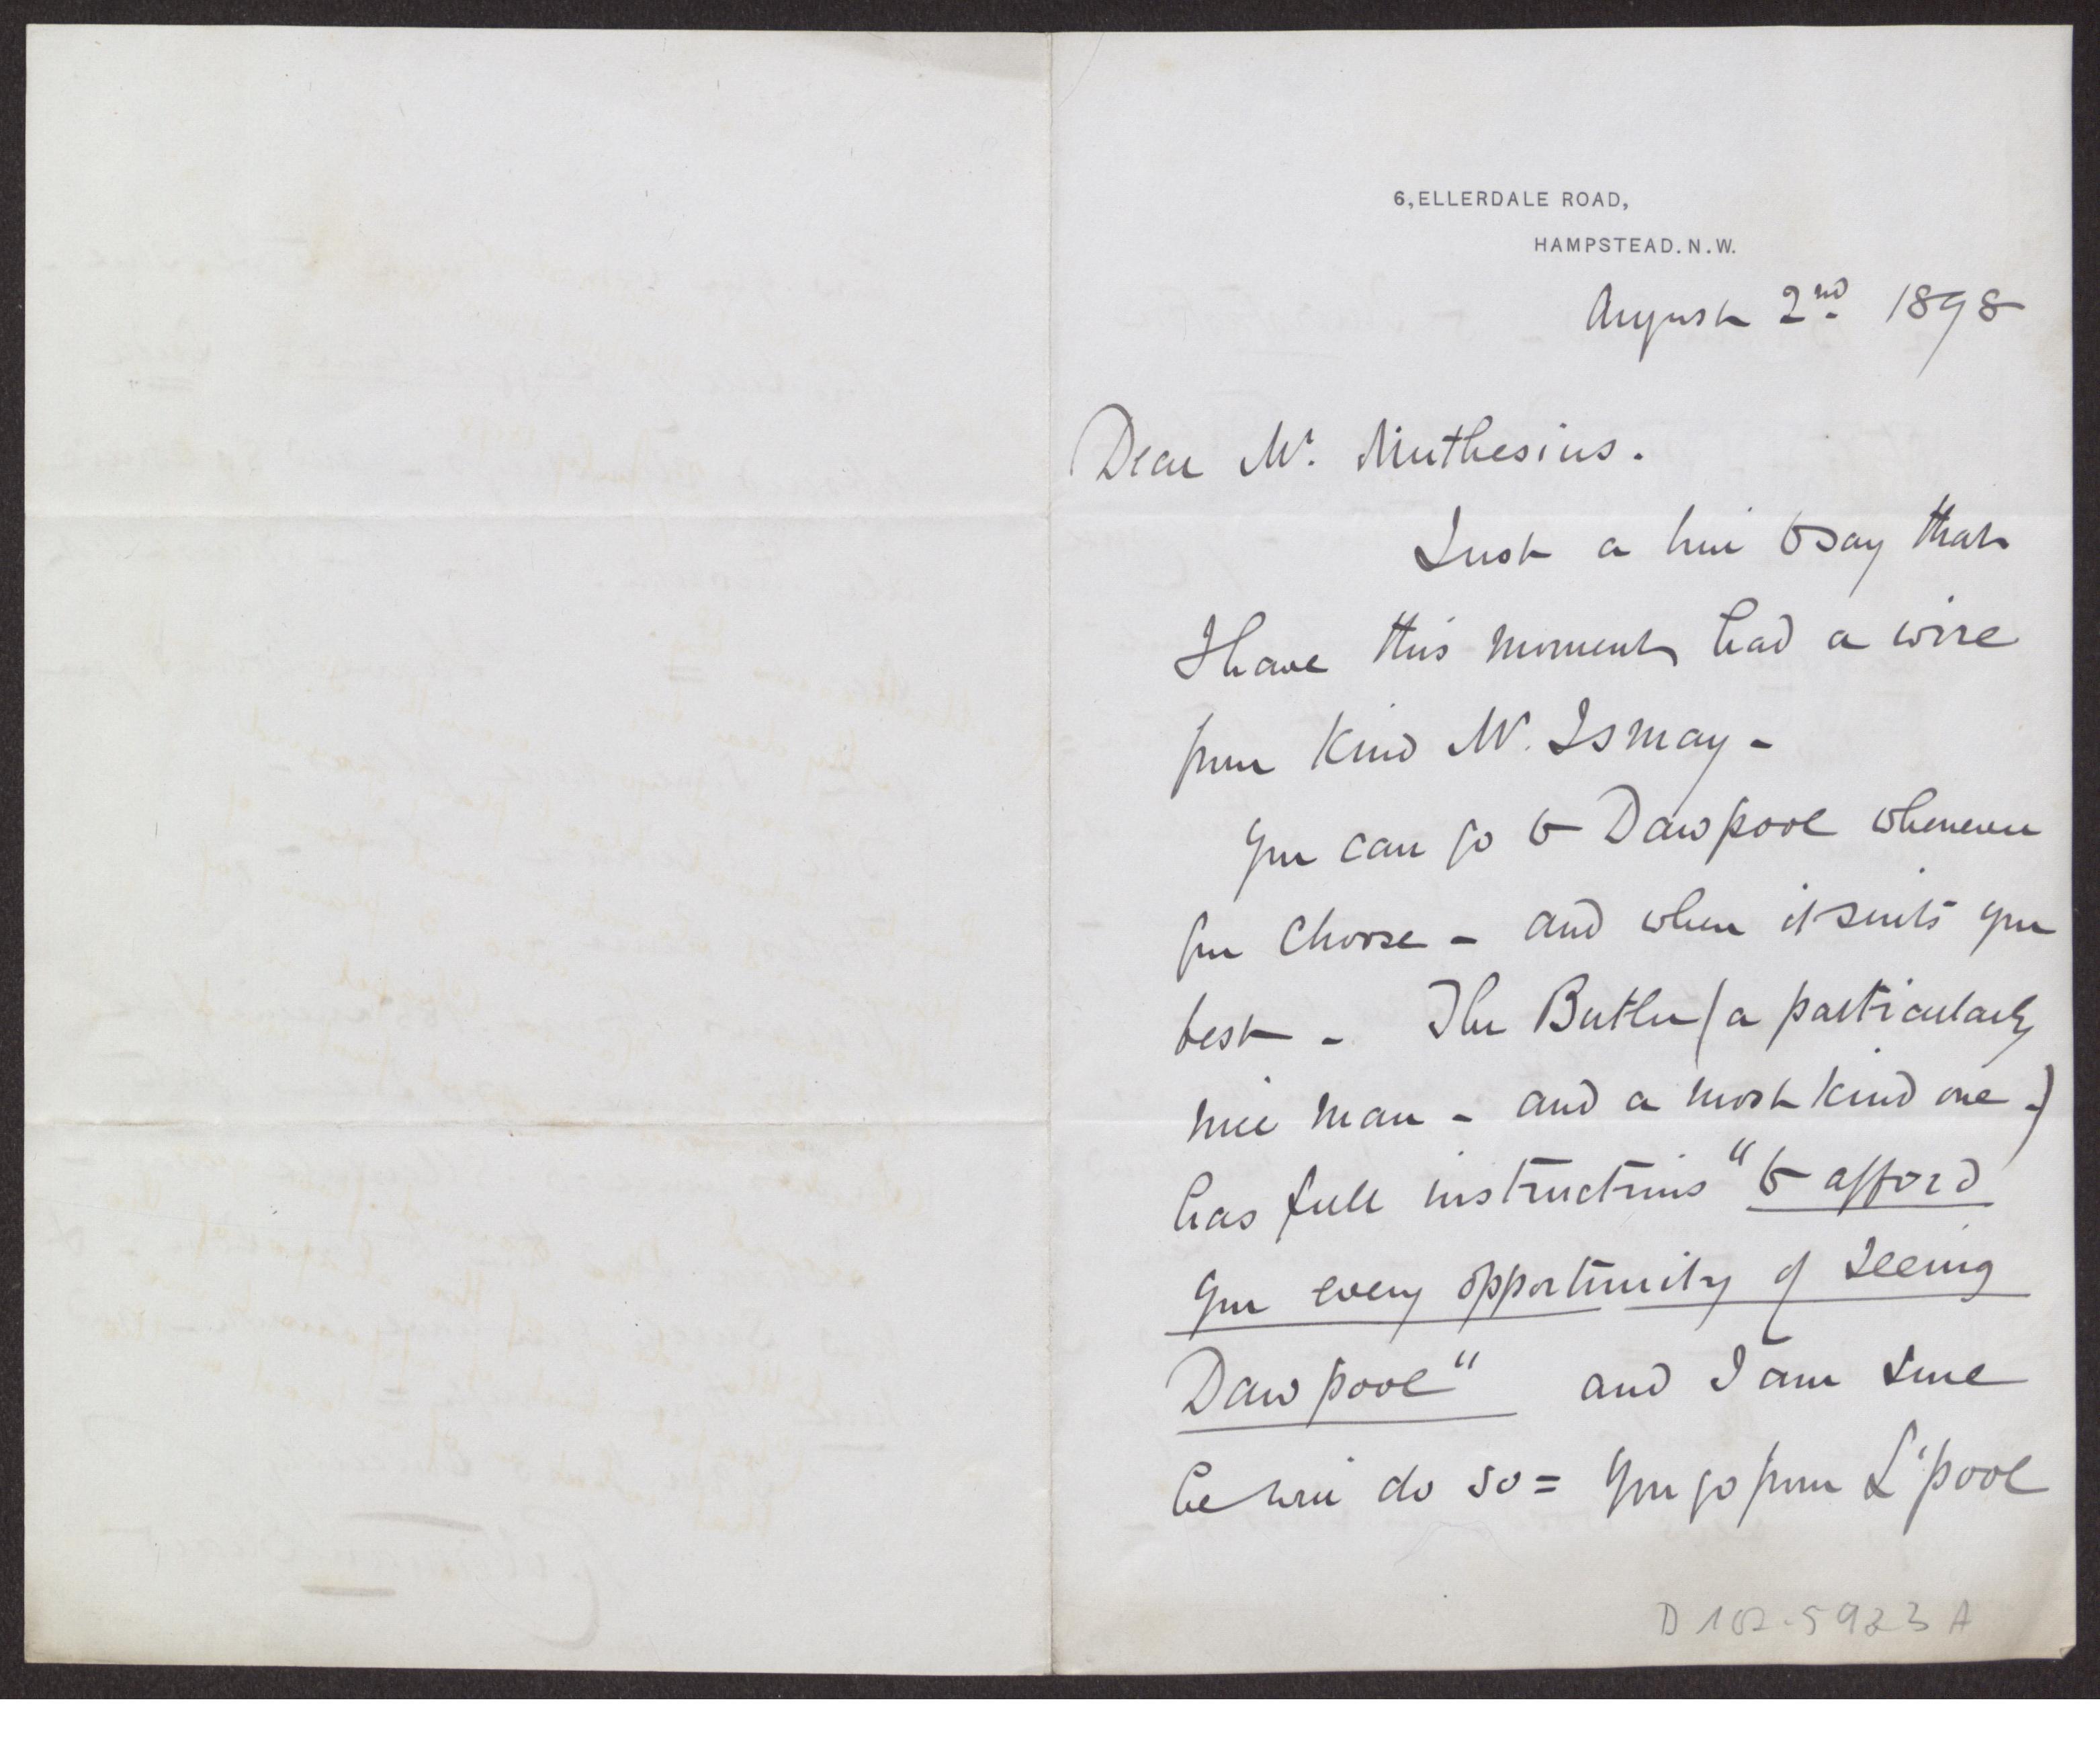 6, ELLERDALE ROAD,
HAMPSTEAD. N. W.
August 2nd 1898
Dear Mr. Muthesius.
Just a line to say that
I have this moment had a wire
from kind Mr. Ismay -
You can go to Dawpool whenever
you choose - and when it suits you
best - The Butler (a particularly
nice man - and a most kind one -)
has full instructions "to afford
you every opportunity of seeing
Dawpool" and I am sure
he will do so = You go from L'pool
D 102-5923 A